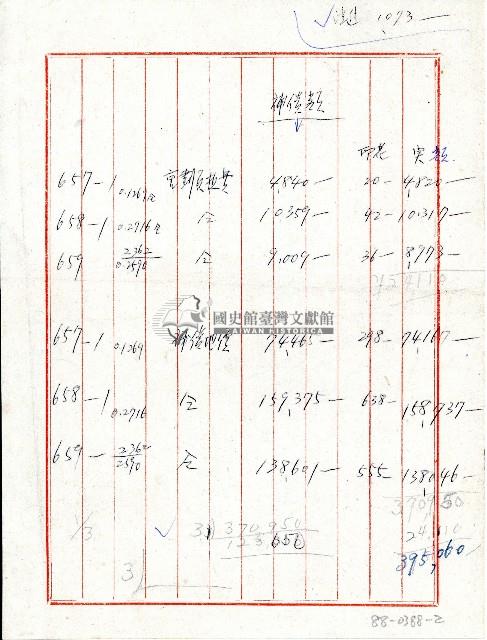 1073—
補償款
印花 実款
657-1 0.1269 4,840— 20— 4,820—
658-1 0.2716 仝 10359— 42— 10,317—
659 2362 0.2590 仝 9,009— 36— 8973—
國史館臺灣文獻館
TAIWAN HISTORICA
657-1 0.1269 補償地價 74,465— 298— 74,167—
658-1 0.2716 仝 159,375— 638— 158,737—
659— 2362 2590 仝 138,601— 555— 138,046—
370950
1/3 3) 370,950 24,110
123650
3 395,060
88-0388-2